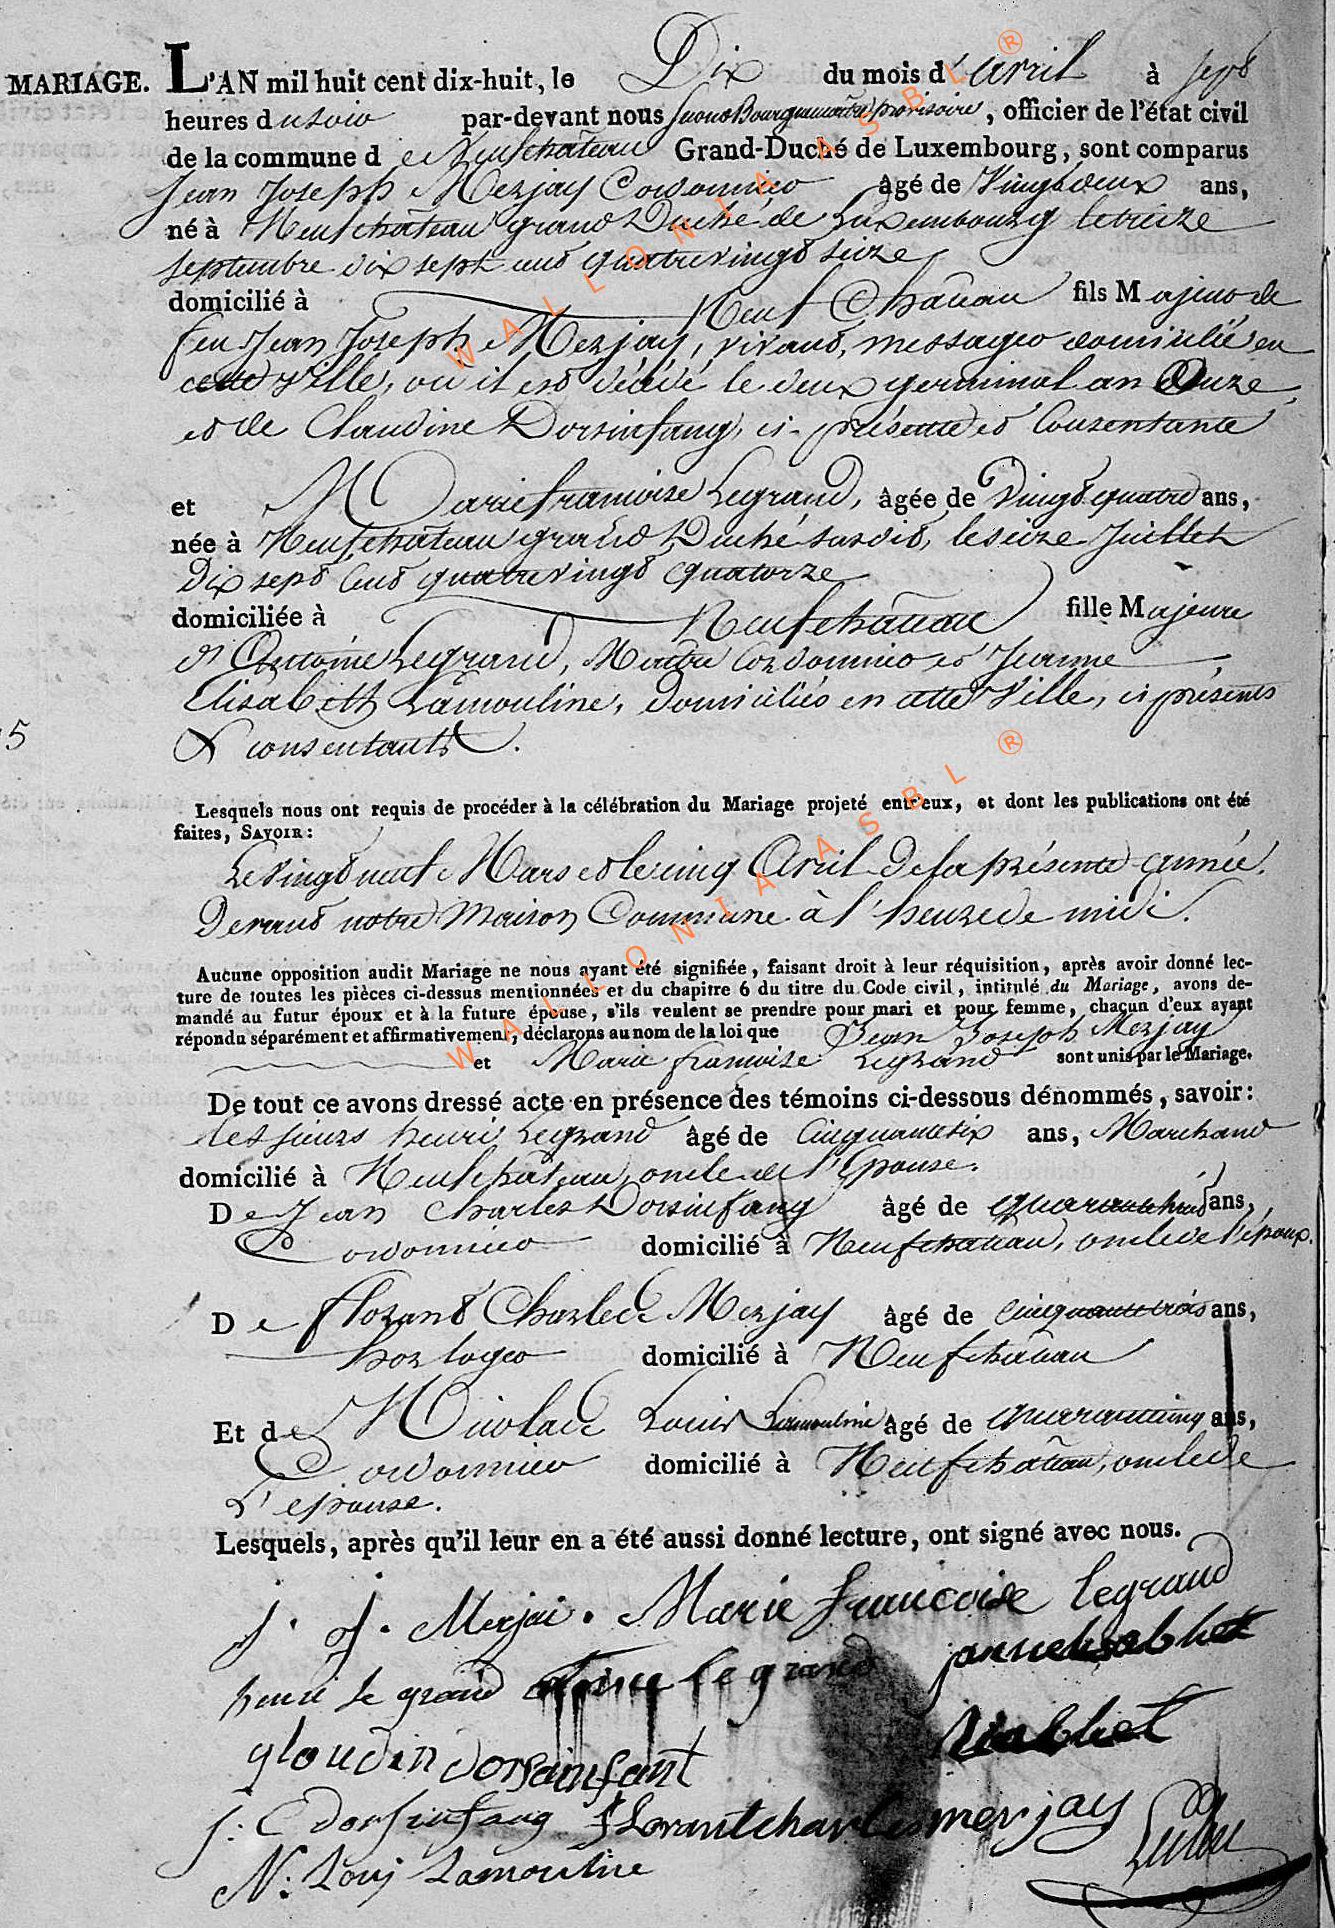 MARIAGE. L'AN mil huit cent dix-huit, le Dix du mois d'avril à sept
heures du soir par-devant nous Bourguemaitre provisoire, officier de l'état civil
de la commune de Neufchâteau Grand-Duché de Luxembourg, sont comparus
Jean Joseph Merjay Cordonnier âgé de Vingt deux ans,
né à Neufchâteau grand Duché de Luxembourg le treize
septembre dix sept cent quatrevingt seize
domicilié à Neufchâteau fils Majeur de
feu Jean Joseph Merjay, vivant, messager domicilié en
cette ville, où il est décédé le deux germinal an Onze
et de Claudine Dorsinfang, ci-présente et Consentante
et Marie francoise Legrand, âgée de Vingt quatre ans,
née à Neufchâteau grand Duché susdit, le seize Juillet
Dix sept Cent quatrevingt quatorze
domiciliée à Neufchâteau fille Majeure
d'Antoine Legrand, Maitre Cordonnier et Jeanne
Elisabeth Lamouline, Domiciliés en cette Ville, ci présents
& consentants.
5
Lesquels nous ont requis de procéder à la célébration du Mariage projeté entr'eux, et dont les publications ont été
faites, SAVOIR:
Le vingt neuf Mars et le cinq Avril De la présente année,
Devant notre Maison Commune à l'heure de midi.
Aucune opposition audit Mariage ne nous ayant été signifiée, faisant droit à leur réquisition, après avoir donné lec-
ture de toutes les pièces ci-dessus mentionnées et du chapitre 6 du titre du Code civil, intitulé du Mariage, avons de-
mandé au futur époux et à la future épouse, s'ils veulent se prendre pour mari et pour femme, chacun d'eux ayant
répondu séparément et affirmativement, déclarons au nom de la loi que Jean Joseph Merjay
et Marie francoise Legrand sont unis par le Mariage.
De tout ce avons dressé acte en présence des témoins ci-dessous dénommés, savoir:
des sieurs henri Legrand âgé de Cinquante six ans, Marchand
domicilié à Neufchâteau, oncle de l'Epouse.
De Jean Charles Dorsinfang âgé de quarante huit ans,
Cordonnier domicilié à Neufchâteau, oncle de l'époux.
De florant Charles Merjay âgé de cinquante trois ans,
horloger domicilié à Neufchâteau
Et de Nicolas Louis Lamouline âgé de quarante cinq ans,
Cordonnier domicilié à Neufchâteau, oncle de
L'epouse.
Lesquels, après qu'il leur en a été aussi donné lecture, ont signé avec nous.
j. j. Merjai. Marie francoise legrand
henri le grand le grand
gloudin dorsainfant
j: C dorsinfang florant charles merjay
N: Louj Lamouline
WALLONIA ASBL ®
WALLONIA ASBL ®